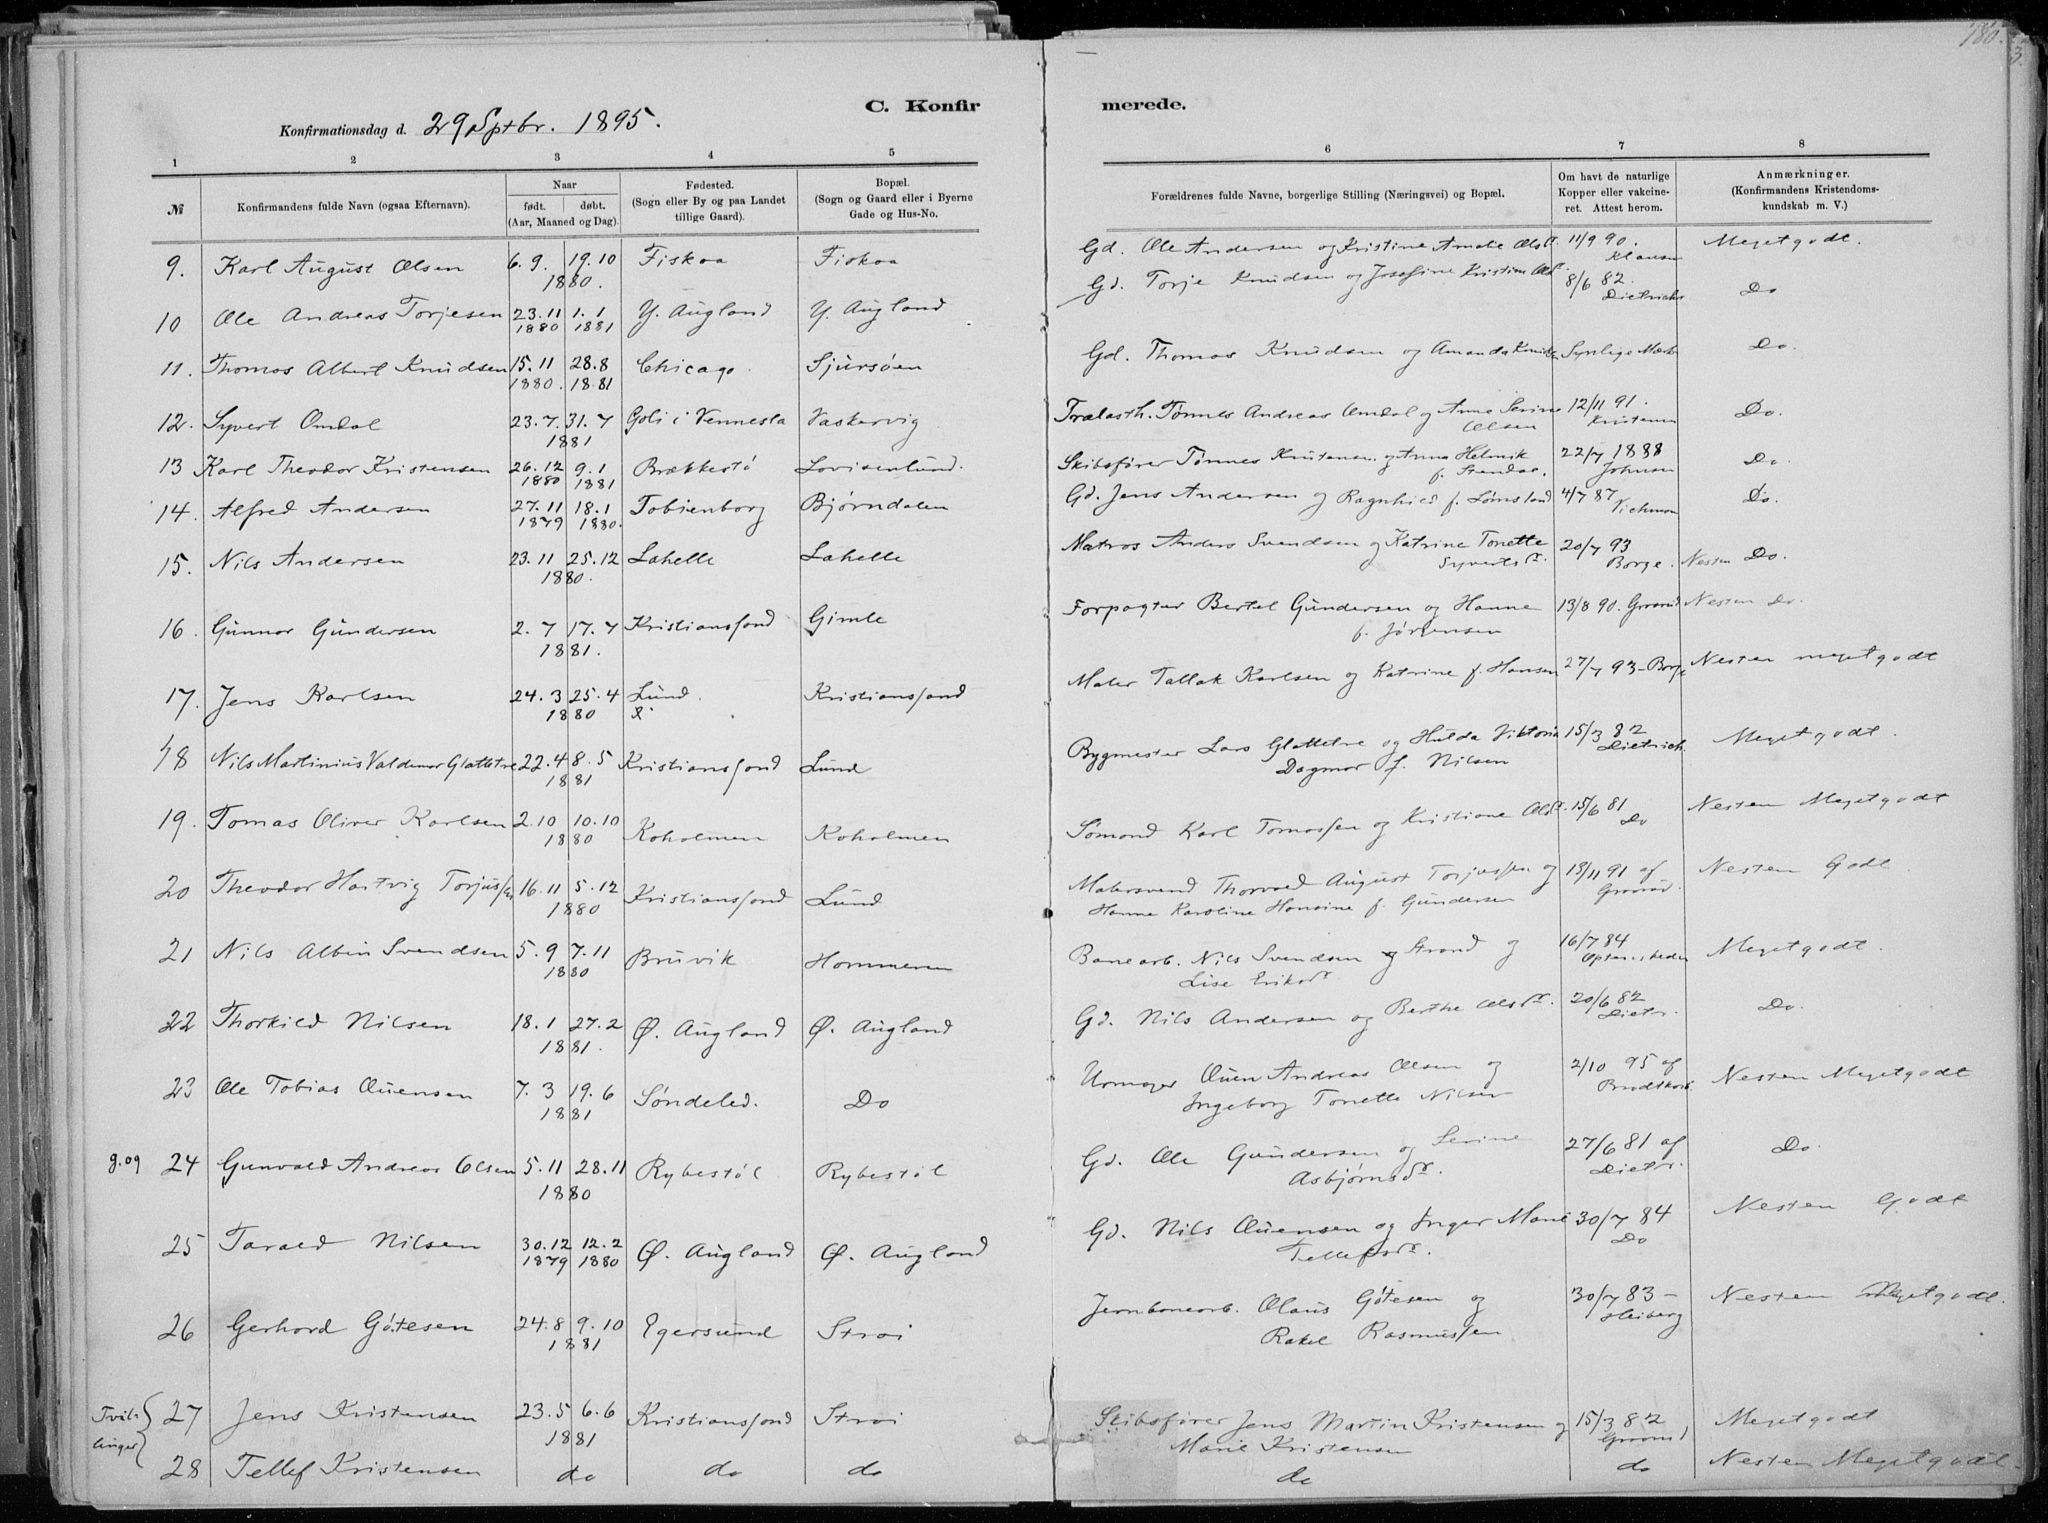 180.
3.
C. Konfir merede.
Konfirmationsdag d. 29 Sptbr. 1895.
1 2 3 4 5 6 7 8
№ Konfirmandens fulde Navn (ogsaa Efternavn). Naar født. døbt. (Aar, Maaned og Dag). Fødested. (Sogn eller By og paa Landet tillige Gaard). Bopæl. (Sogn og Gaard eller i Byerne Gade og Hus-No. Forældrenes fulde Navne, borgerlige Stilling (Næringsvei) og Bopæl. Om havt de naturlige Kopper eller vakcineret. Attest herom. Anmærkninger. (Konfirmandens Kristendomskundskab m. V.)
9. Karl August Olsen 6.9. 19.10 1880. Fiskaa Fiskaa Gd. Ole Andersen og Kristine Amalie Olsdr. 11/9 90. Klausen Megetgodt.
10 Ole Andreas Torjesen 23.11 1880 1.1 1881 Y. Augland Y. Augland Gd. Torje Knudsen og Josefine Kristine 8/6 82. Dietrichs Do
11. Thomas Albert Knudsen 15.11 1880. 28.8 1881 Chicago. Sjursøen Gd. Thomas Knudsen og Amanda Knudsen Synlige Mærker Do.
12. Syvert Omdal 23.7. 31.7 1881 Goli i Vennesla Vaskervig Trælasth. Tønnes Andreas Omdal og Anna Serine Olsen 12/11 91. Do.
13 Karl Theodor Kristensen 26.12 1880 9.1 1881 Brækkestø Lovisenlund. Skibsfører Tønnes og Anna Helmik 22/7 1888 Johnsen Do.
14. Alfred Andersen 27.11 1879 18.1 1880. Tobienborg Bjørndalen Gd. Jens Andersen og Ragnhild f. Lømsland 4/7 87 Do.
15. Nils Andersen 23.11 25.12 1880. Lahelle Lahelle Matros Anders Svendsen og Katrine Tonette Syvertsdr. 20/7 93 Borge. Nesten Do.
16. Gunnar Gundersen 2.7 17.7 1881. Kristianssand Gimle Forpagter Bertel Gundersen og Hanne f. Jørgensen 13/8 90. Nesten Do.
17. Jens Karlsen 24.3 25.4 1880 Lund. Kristianssand Maler Tallak Karlsen og Katrine f. Hansen 27/7 93-Borge Nesten megetgodt
18 Nils Martinius Valdemar Glattetre 22.4 8.5 1881 Kristianssand Lund Bygmester Lars Glattetre og Hulda Viktoria Dagmar f. Nilsen 15/3 82 Dietrich. Megetgodt.
19. Tomas Oliver Karlsen 2.10 10.10 1880 Koholmen Koholmen Sømand Karl Tomassen og Kristiane Olsdr. 15/6 81 Do Nesten Megetgodt
20 Theodor Hartvig Torjussen 16.11 5.12 1880 Kristianssand Lund Malersvend Thorvald August Torjussen og Hanne Karoline Hansine f. Gundersen 13/11 91 af Nesten Godt
21 Nils Albin Svendsen 5.9 7.11 1880 Bruvik Hommeren Banearb. Nils Svendsen Strand og Lise Eriksdr. 16/7 84 Megetgodt.
22 Thorkild Nilsen 18.1 27.2 1881. Ø. Augland Ø. Augland Gd. Nils Andersen og Berthe Olsdr. 20/6 82 Dietr. Do.
23 Ole Tobias Ouensen 7.3 19.6 1881 Søndeled. Do Urmager Ouen Andreas Olsen og Ingeborg Tonette Nilsen 2/10 95 af Nesten Megetgodt
g.og 24 Gunvald Andreas Olsen 5.11 28.11 1880 Rybestøl Rybestøl Gd. Ole Gundersen og Serine Asbjørnsdr. 27/6 81 af Dietr. Do.
25 Tarald Nilsen 30.12 1879 12.2 1880 Ø. Augland Ø. Augland Gd. Nils Ouensen og Inger Marie Tellefsdr. 30/7 84 Do Nesten Godt
26 Gerhard Gøtesen 24.8 9.10 1881 Egersund Strai Jernbanearb. Olaus Gøtesen og Rakel Rasmussen 30/7 83- Heiberg Nesten Megetgodt.
Tvillinger 27 Jens Kristensen 23.5 6.6 1881 Kristianssand Strai Skibsfører Jens Martin Kristensen og Marie Kristensen 15/3 82 Megetgodt
28 Tellef Kristensen do do do do do Nesten Megetgodt.